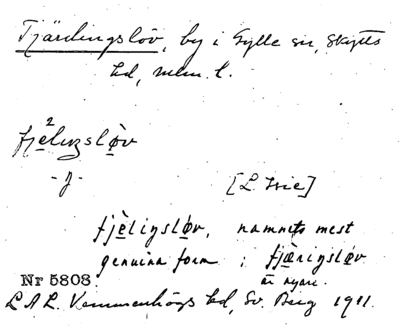 Fjärdingslöv, by i Gylle sn, Skytts
hd, mlm. l.
fjelıŋsløv
-j-
[L Ivie]
fjèligsløv, namnets mest
genuina form ; fjærigsløv
är nyare.
Nr 5808
L A L. Vemmenhögs hd, Sv. Berg 1911.